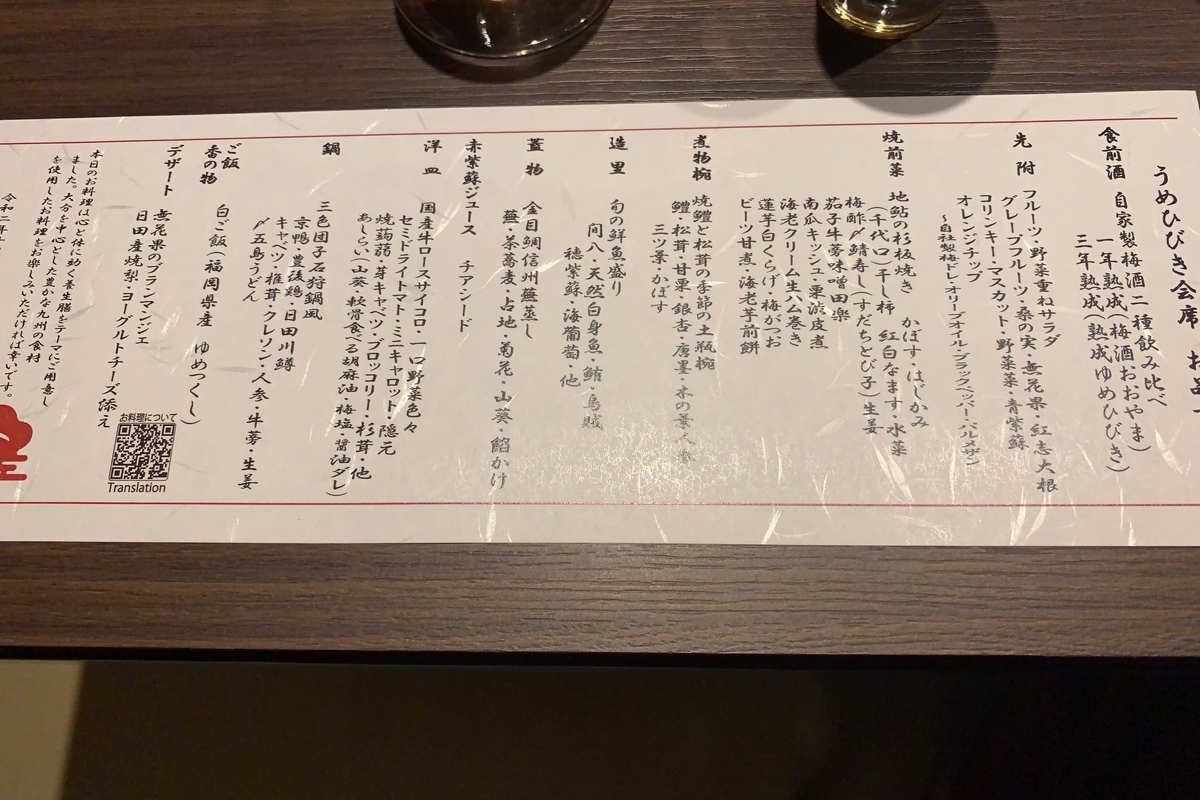 うめひびき会席
食前酒
自家製梅酒二種飲み比べ
一年熟成(梅酒おおやま)
三年熟成(熟成ゆめひびき)
先附
フルーツ・野菜重ねサラダ
グレープフルーツ・桑の実・無花果・紅志大根
コリンキー・マスカット・野菜菜・青紫蘇
オレンジチップ
〜自社製梅ドレ・オリーブオイル・ブラックペッパー・パルメザン
焼前菜
地鮎の杉板焼き かぼす・はじかみ
(千代口)干し柿 紅白なます・水菜
梅酢〆鯖寿し(すだちとび子)生姜
茄子牛蒡味噌田楽
南瓜キッシュ・栗渋皮煮
海老クリーム生ハム巻き
蓮芋白くらげ・梅がつお
ビーツ甘煮・海老芋煎餅
煮物椀
焼鱧と松茸の季節の土瓶椀
鱧・松茸・甘栗・銀杏・唐墨・木の葉人参
三ツ葉・かぼす
造里
旬の鮮魚盛り
間八・天然白身魚・鮪・烏賊
穂紫蘇・海葡萄・他
蓋物
金目鯛信州蕪蒸し
蕪・茶蕎麦・占地・菊花・山葵・餡かけ
赤紫蘇ジュース チア・シード
洋皿
国産牛ロースサイコロ・一口野菜色々
セミドライトマト・ミニキャロット・隠元
焼蒟蒻・芽キャベツ・ブロッコリー・杉茸・他
あしらい(山葵・軟骨食べる胡麻油・梅塩・醤油ダレ)
鍋
三色団子石狩鍋風
京鴨・豊後鶏・日田川鱒
キャベツ・椎茸・クレソン・人参・牛蒡・生姜
〆五島うどん
ご飯
香の物
白ご飯(福岡県産 ゆめつくし)
デザート
無花果のブランマンジェ
日田産焼梨・ヨーグルトチーズ添え
本日のお料理は心と体に効く養生膳をテーマにご用意し
ました。大分を中心とした豊かな九州の食材
を使用したお料理をお楽しみいただければ幸いです。
令和二年
お料理について
Translation